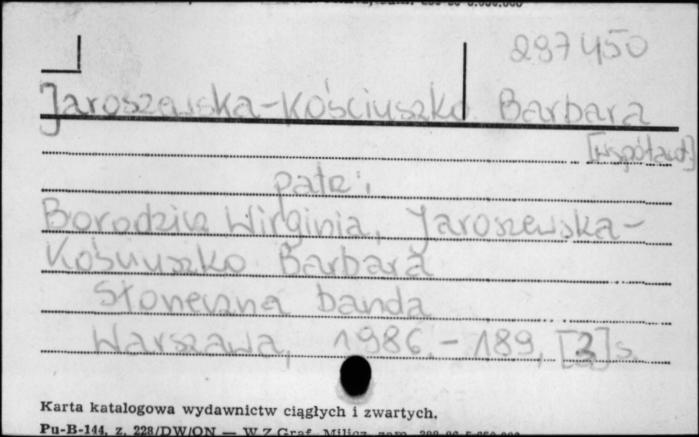 297450
Jaroszewska-Kościuszko Barbara
[współaut.]
patrz:
Borodzicz Wirginia, Jaroszewska-
Kościuszko Barbara
Słoneczna banda
Warszawa, 1986. - 189, [3] s.
Karta katalogowa wydawnictw ciągłych i zwartych.
Pu-B-144, z. 228/DW/ON — W.Z.Graf. Milicz, zam.